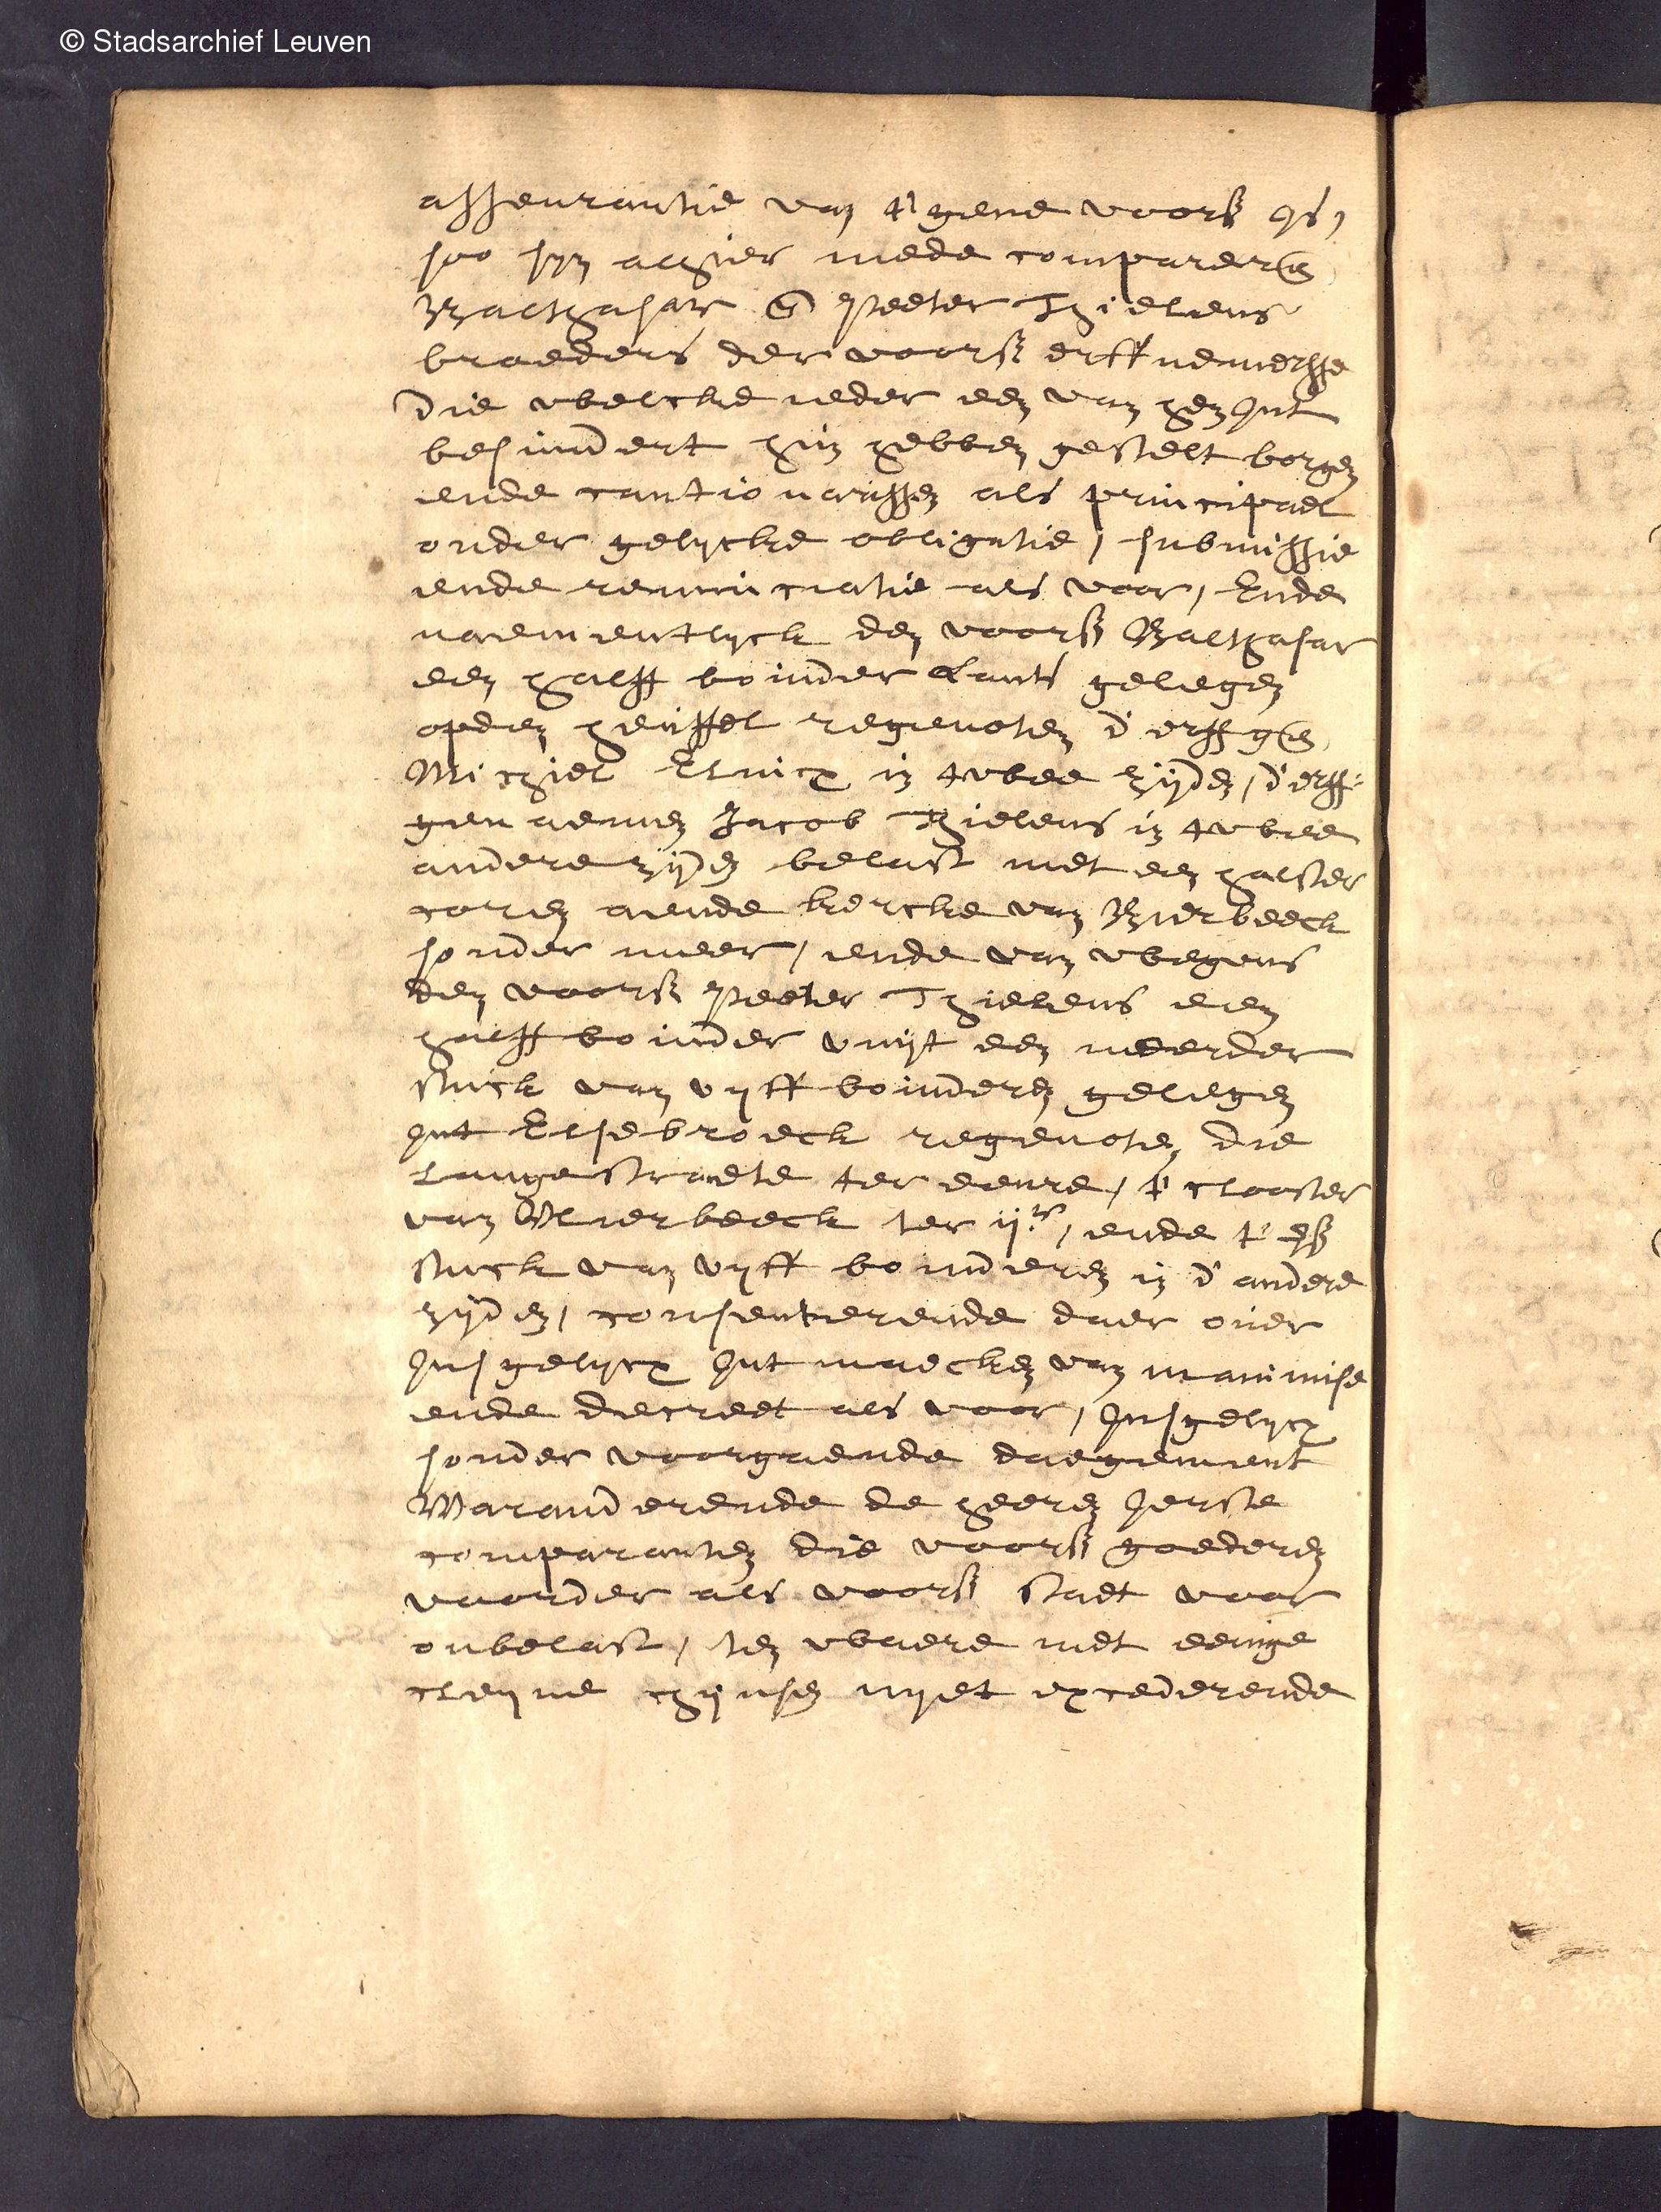 © Stadsarchief Leuven
asseurantie van t'gene voors is,
soo syn alhier mede comparer(en)
Balthasar en(de) Peeter Thielens
broeders der voors erffnemersse
die welcke ieder een van hen int
besundert hun hebben gestelt borgen
ende cautionarissen als principael
onder gelycke obligatie, submissie
ende renunciatie als voor, Ende
naementlyck den voors Balthasar
een halff boinder Lants gelegen
opden heuffel regenoten d'erffg(en)
Michiel in twee zijden, d'erff-
genaemen Jacob Thielens in twee
andere zijden belast met een halster
coren aende kercke van Bierbeeck
sonder meer, ende van wegens
den voors Peeter Thielens een
halff boinder vuijt een meerder
stuck van vyff boinderen gelegen
int Elsebroeck regenoten die
Langestraete ter eenre, t'clooster
van Vlierbeeck ter ij.re, ende t'
stuck van vyff boinderen in d'andere
zijden, consenterende daer over
insgelycx int maecken van manimise
ende decreet als voor, insgelycx
sonder voorgaende daegement
Waranderende de heeren ierste
comparanten die voors goederen
voorder als voors staet voor
onbelast, ten waere met eenige
cleyne chijnsen nyet excederende